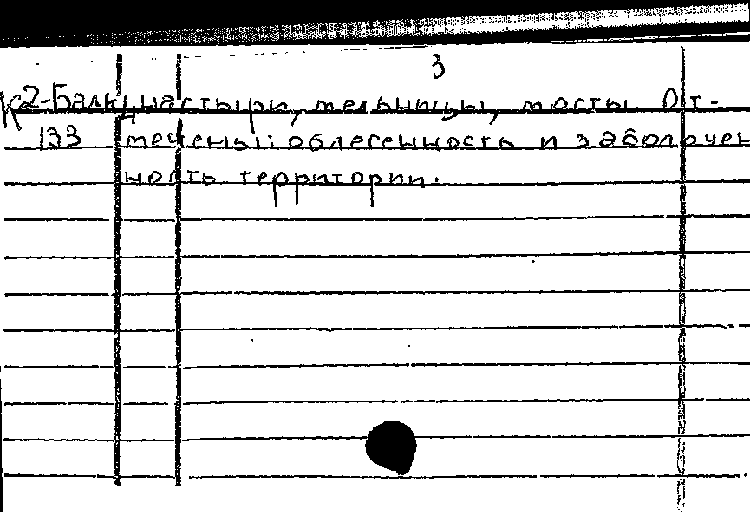 3
К2-Балк, настыри, мельницы, мосты. От-
133 мечены: облесенность и заболочен
ность территории.